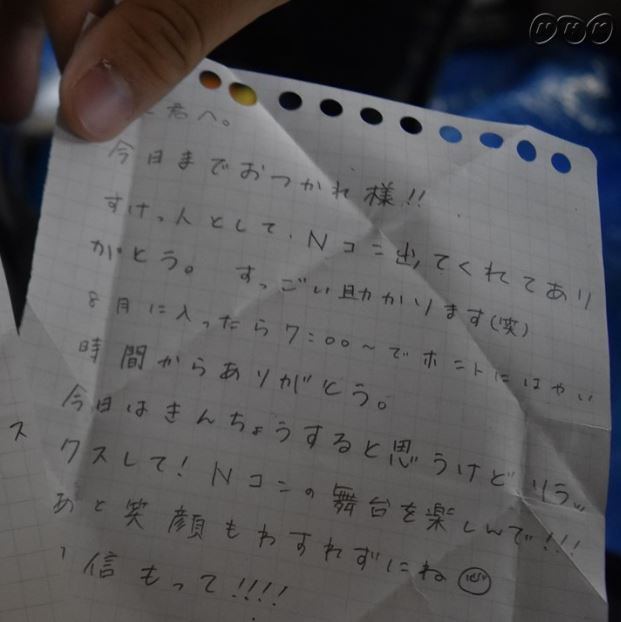 NHK
君へ。
今日までおつかれ様!!
すけっ人として、Nコン出てくれてあり
がとう。 すっごい助かります(笑)
8月に入ったら7:00〜でホントにはやい
時間からありがとう。
今日はきんちょうすると思うけど リラッ
クスして! Nコンの舞台を楽しんで!!!
あと笑顔もわすれずにね
信もって!!!!
ス